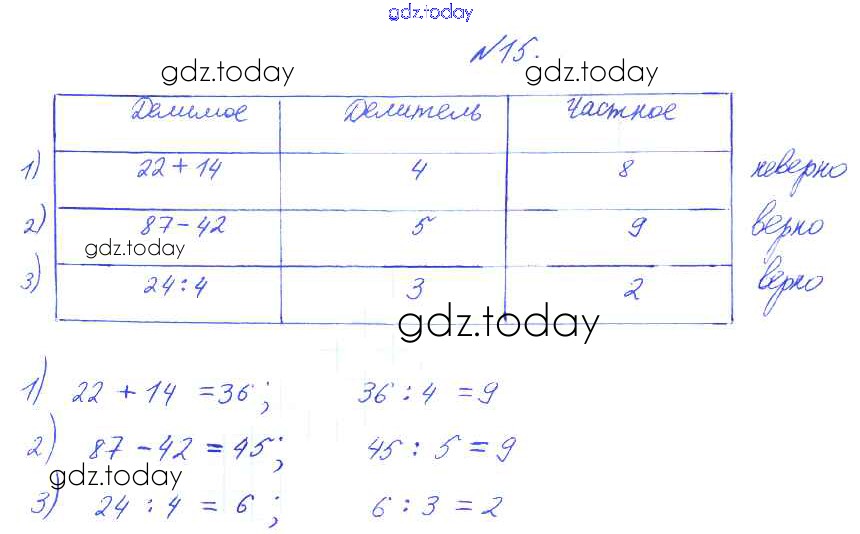 gdz.today
№15.
gdz.today gdz.today
Делимое Делитель Частное
1) 22 + 14 4 8 неверно
2) 87 - 42 5 9 верно
gdz.today
3) 24 : 4 3 2 верно
gdz.today
1) 22 + 14 = 36; 36 : 4 = 9
2) 87 - 42 = 45; 45 : 5 = 9
gdz.today
3) 24 : 4 = 6; 6 : 3 = 2